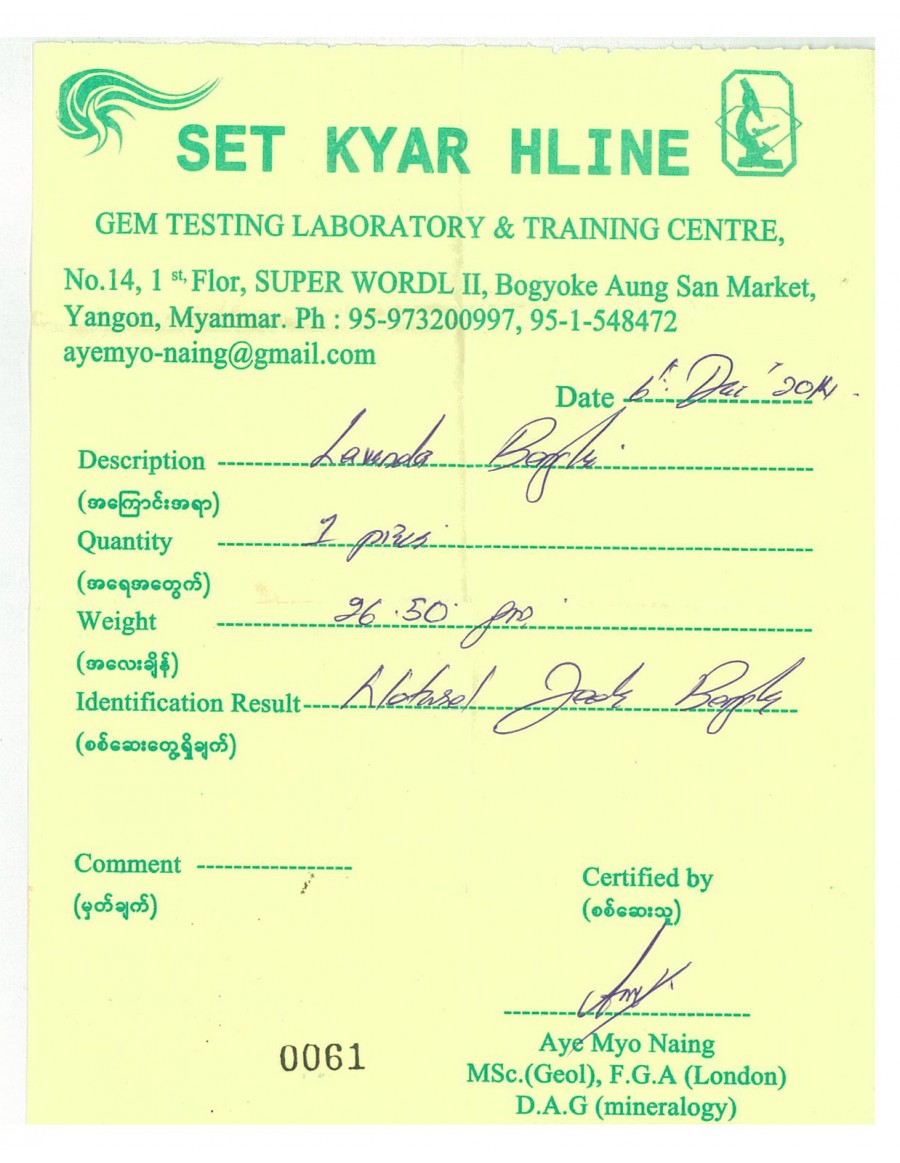 SET KYAR HLINE
GEM TESTING LABORATORY & TRAINING CENTRE,
No.14, 1 st, Flor, SUPER WORDL II, Bogyoke Aung San Market,
Yangon, Myanmar. Ph : 95-973200997, 95-1-548472
ayemyo-naing@gmail.com
Date 6th 2014
Description Lavenda
(အကြောင်းအရာ)
Quantity 1
(အရေအတွက်)
Weight 26.50 gm
(အလေးချိန်)
Identification Result Natural Jade
(စစ်ဆေးတွေ့ရှိချက်)
Comment
(မှတ်ချက်)
Certified by
(စစ်ဆေးသူ)
Aye Myo Naing
MSc.(Geol), F.G.A (London)
D.A.G (mineralogy)
0061